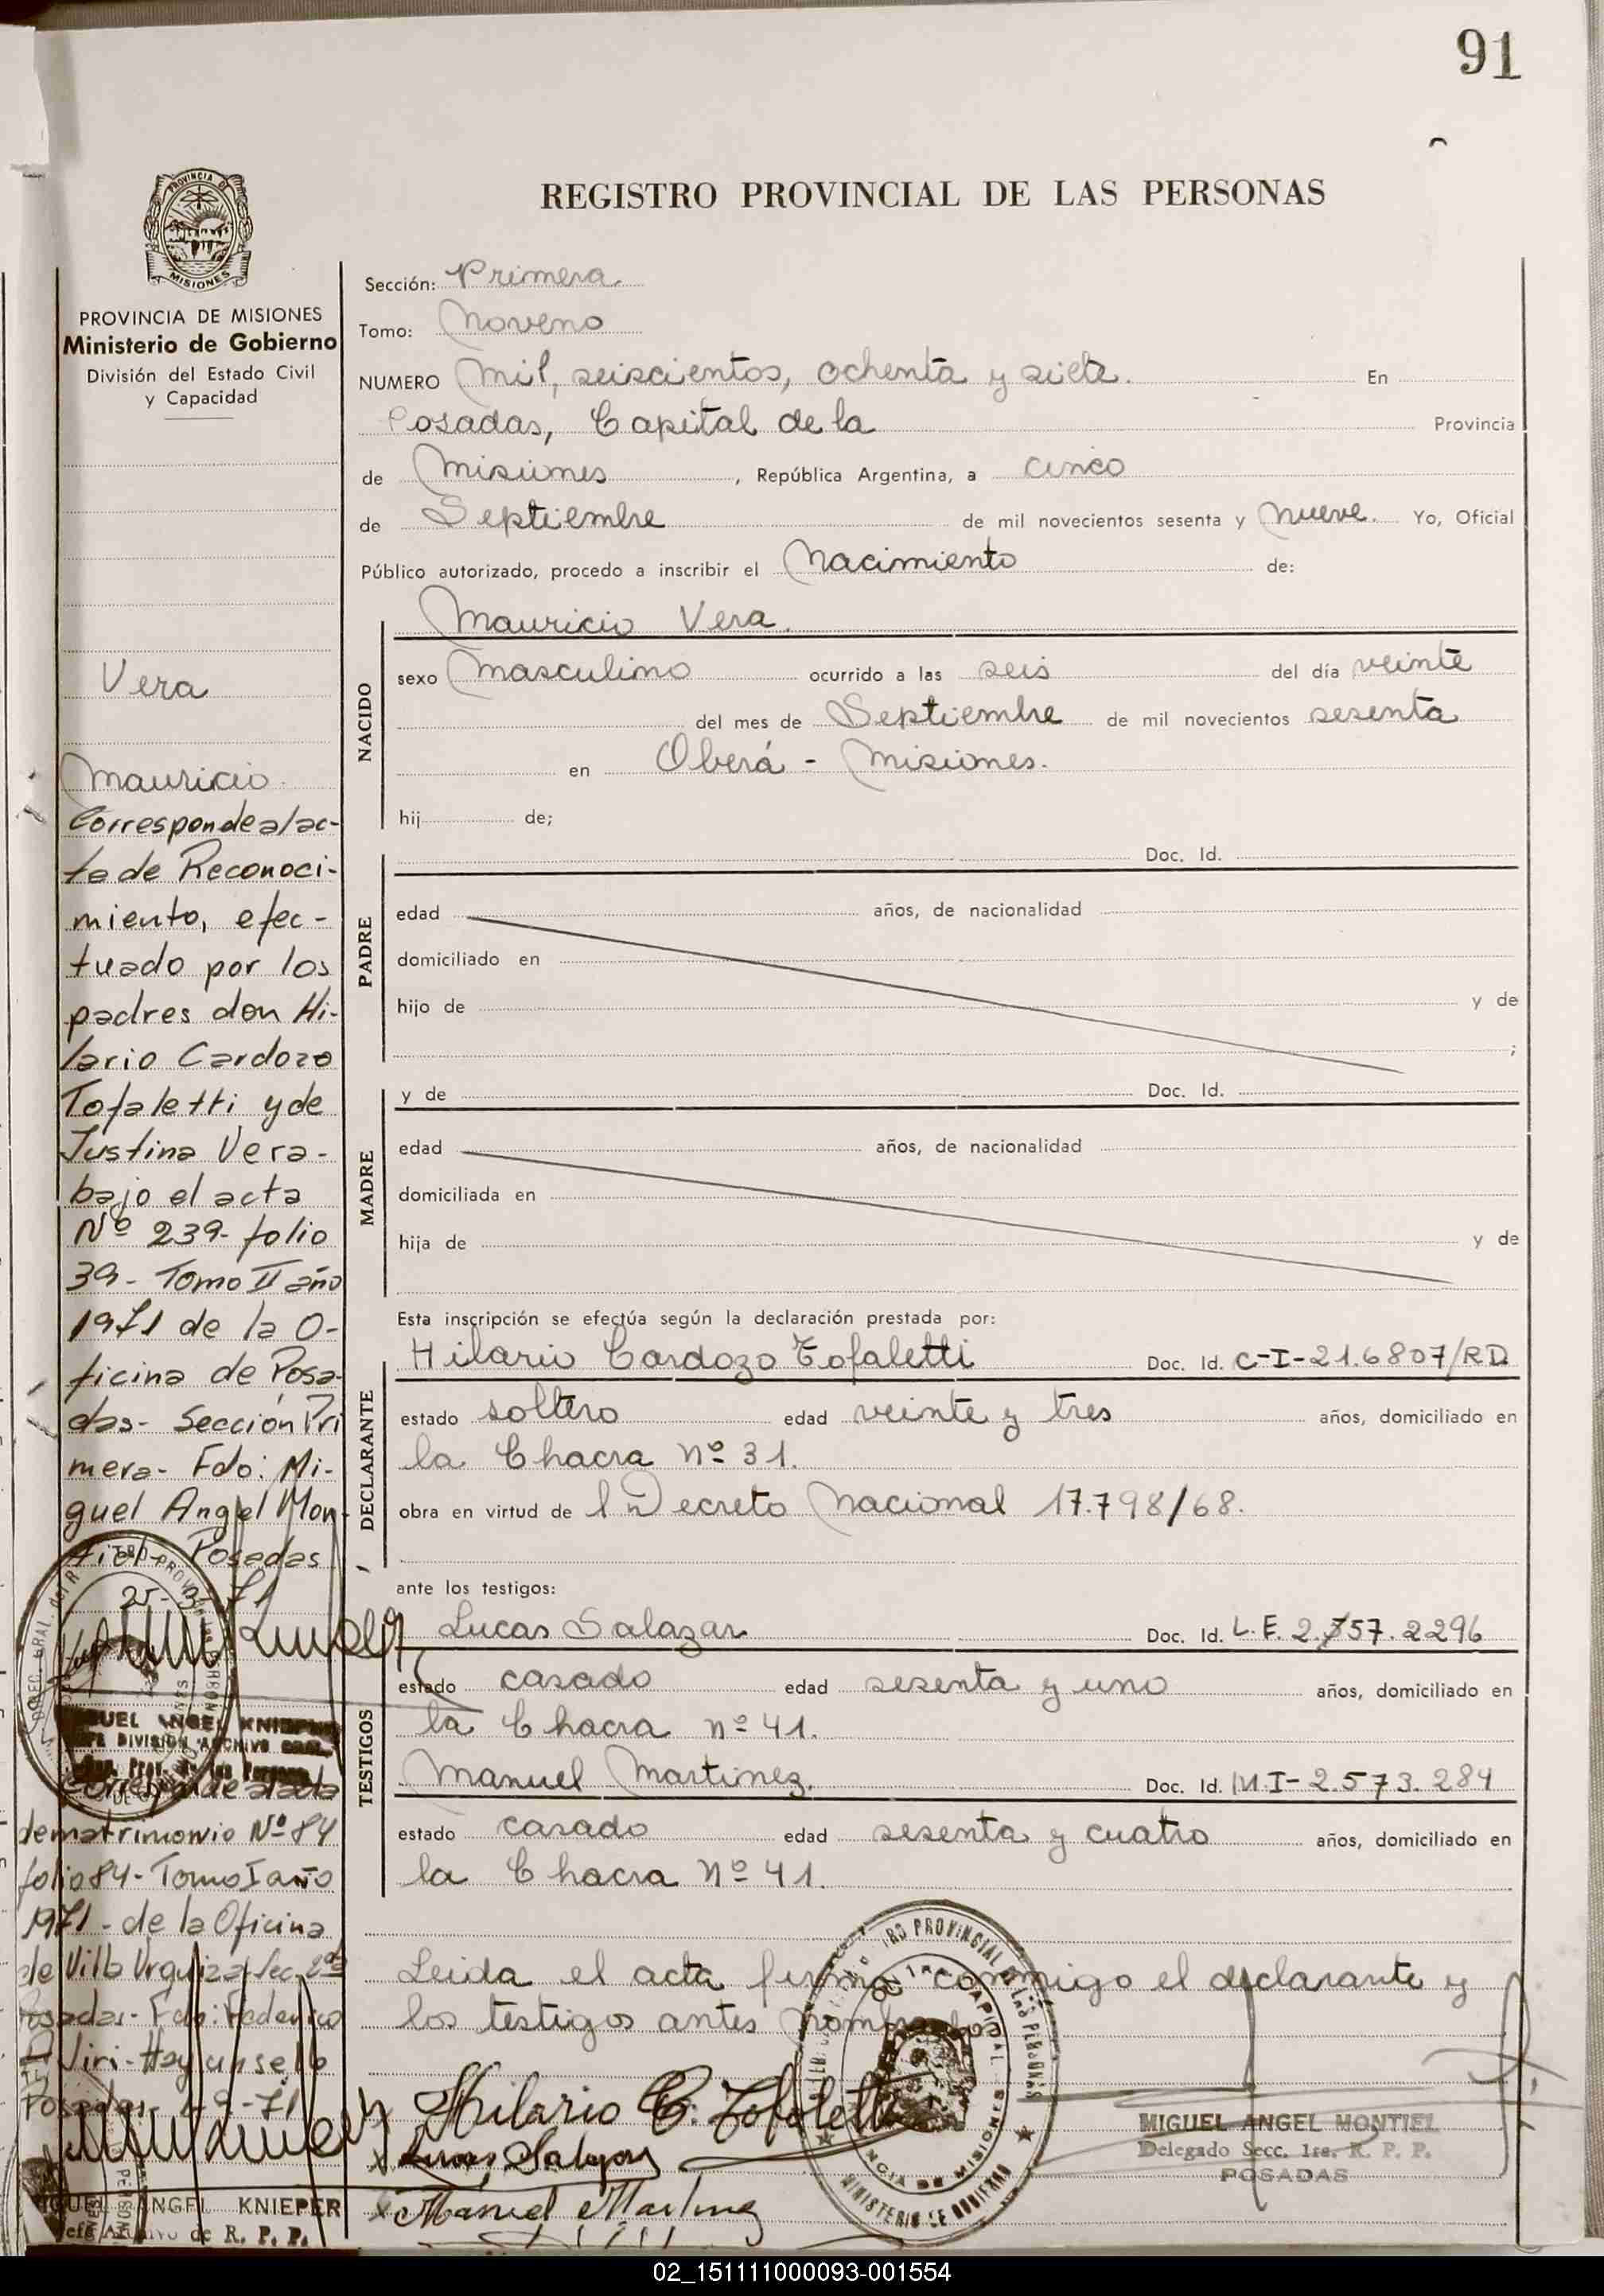 91
REGISTRO PROVINCIAL DE LAS PERSONAS
PROVINCIA DE
MISIONES
PROVINCIA DE MISIONES
Ministerio de Gobierno
División del Estado Civil
y Capacidad
Vera
Mauricio
Corresponde al ac-
ta de Reconoci-
miento, efec-
tuado por los
padres don Hi-
lario Cardozo
Tofaletti y de
Justina Vera-
bajo el acta
Nº 239- folio
39- Tomo II año
1971 de la O-
ficina de Posa-
das- Sección Pri
mera- Fdo: Mi-
guel Angel Mon
tiel- Posadas
25-3-71
MIGUEL ANGEL KNIEPER
JEFE DIVISION ARCHIVO GRAL.
Corresponde al acta
de matrimonio Nº 84
folio 84- Tomo I año
1971- de la Oficina
de Villa Urquiza Sec. 2da
Posadas- Fdo: Federico
Viri- Hay un sello
Posadas- -9-71
MIGUEL ANGEL KNIEPER
Jefe Archivo de R. P. P.
Sección: Primera
Tomo: Noveno
NUMERO Mil, seiscientos, ochenta y siete. En
Posadas, Capital de la Provincia
de Misiones, República Argentina, a cinco
de Septiembre de mil novecientos sesenta y nueve. Yo, Oficial
Público autorizado, procedo a inscribir el Nacimiento de:
NACIDO
Mauricio Vera.
sexo Masculino ocurrido a las seis del día veinte
del mes de Septiembre de mil novecientos sesenta
en Oberá - Misiones.
hij de;
PADRE
Doc. Id.
edad años, de nacionalidad
domiciliado en
hijo de y de
;
MADRE
y de Doc. Id.
edad años, de nacionalidad
domiciliada en
hija de y de
Esta inscripción se efectúa según la declaración prestada por:
DECLARANTE
Hilario Cardozo Tofaletti Doc. Id. C-I-21.6807/RD
estado soltero edad veinte y tres años, domiciliado en
la Chacra Nº 31.
obra en virtud de l Decreto Nacional 17.798/68.
ante los testigos:
TESTIGOS
Lucas Salazar Doc. Id. L.E. 2.757.2296
estado casado edad sesenta y uno años, domiciliado en
la Chacra nº 41.
Manuel Martinez. Doc. Id. M I-2.573.284
estado casado edad sesenta y cuatro años, domiciliado en
la Chacra Nº 41.
Leida el acta firma conmigo el declarante y
los testigos antes nombrados
Hilario C. Tofaletti
Lucas Salazar
Manuel Martinez
MIGUEL ANGEL MONTIEL
Delegado Secc. 1ra. R. P. P.
POSADAS
02_151111000093-001554